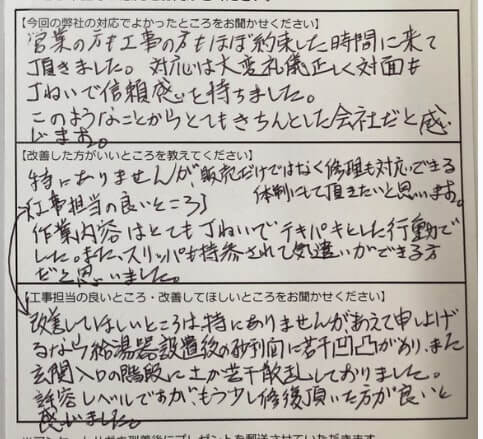 【今回の弊社の対応でよかったところをお聞かせください】
営業の方も工事の方もほぼ約束した時間に来て
頂きました。対応は大変礼儀正しく対面も
丁ねいで信頼感を持ちました。
このようなことからとてもきちんとした会社だと感
じます。
【改善した方がいいところを教えてください】
特にありませんが、販売だけではなく修理も対応できる
体制にして頂きたいと思います。
[工事担当の良いところ]
作業内容はとても丁ねいでテキパキとした行動で
した。また、スリッパも持参されて気遣いができる方
だと思いました。
【工事担当の良いところ・改善してほしいところをお聞かせください】
改善してほしいところは、特にありませんが、あえて申し上げ
るなら給湯器設置後の砂利面に若干凹凸があり、また
玄関入口の階段に土が若干散乱しておりました。
許容レベルですが、もう少し修復頂いた方が良いと
感じました。